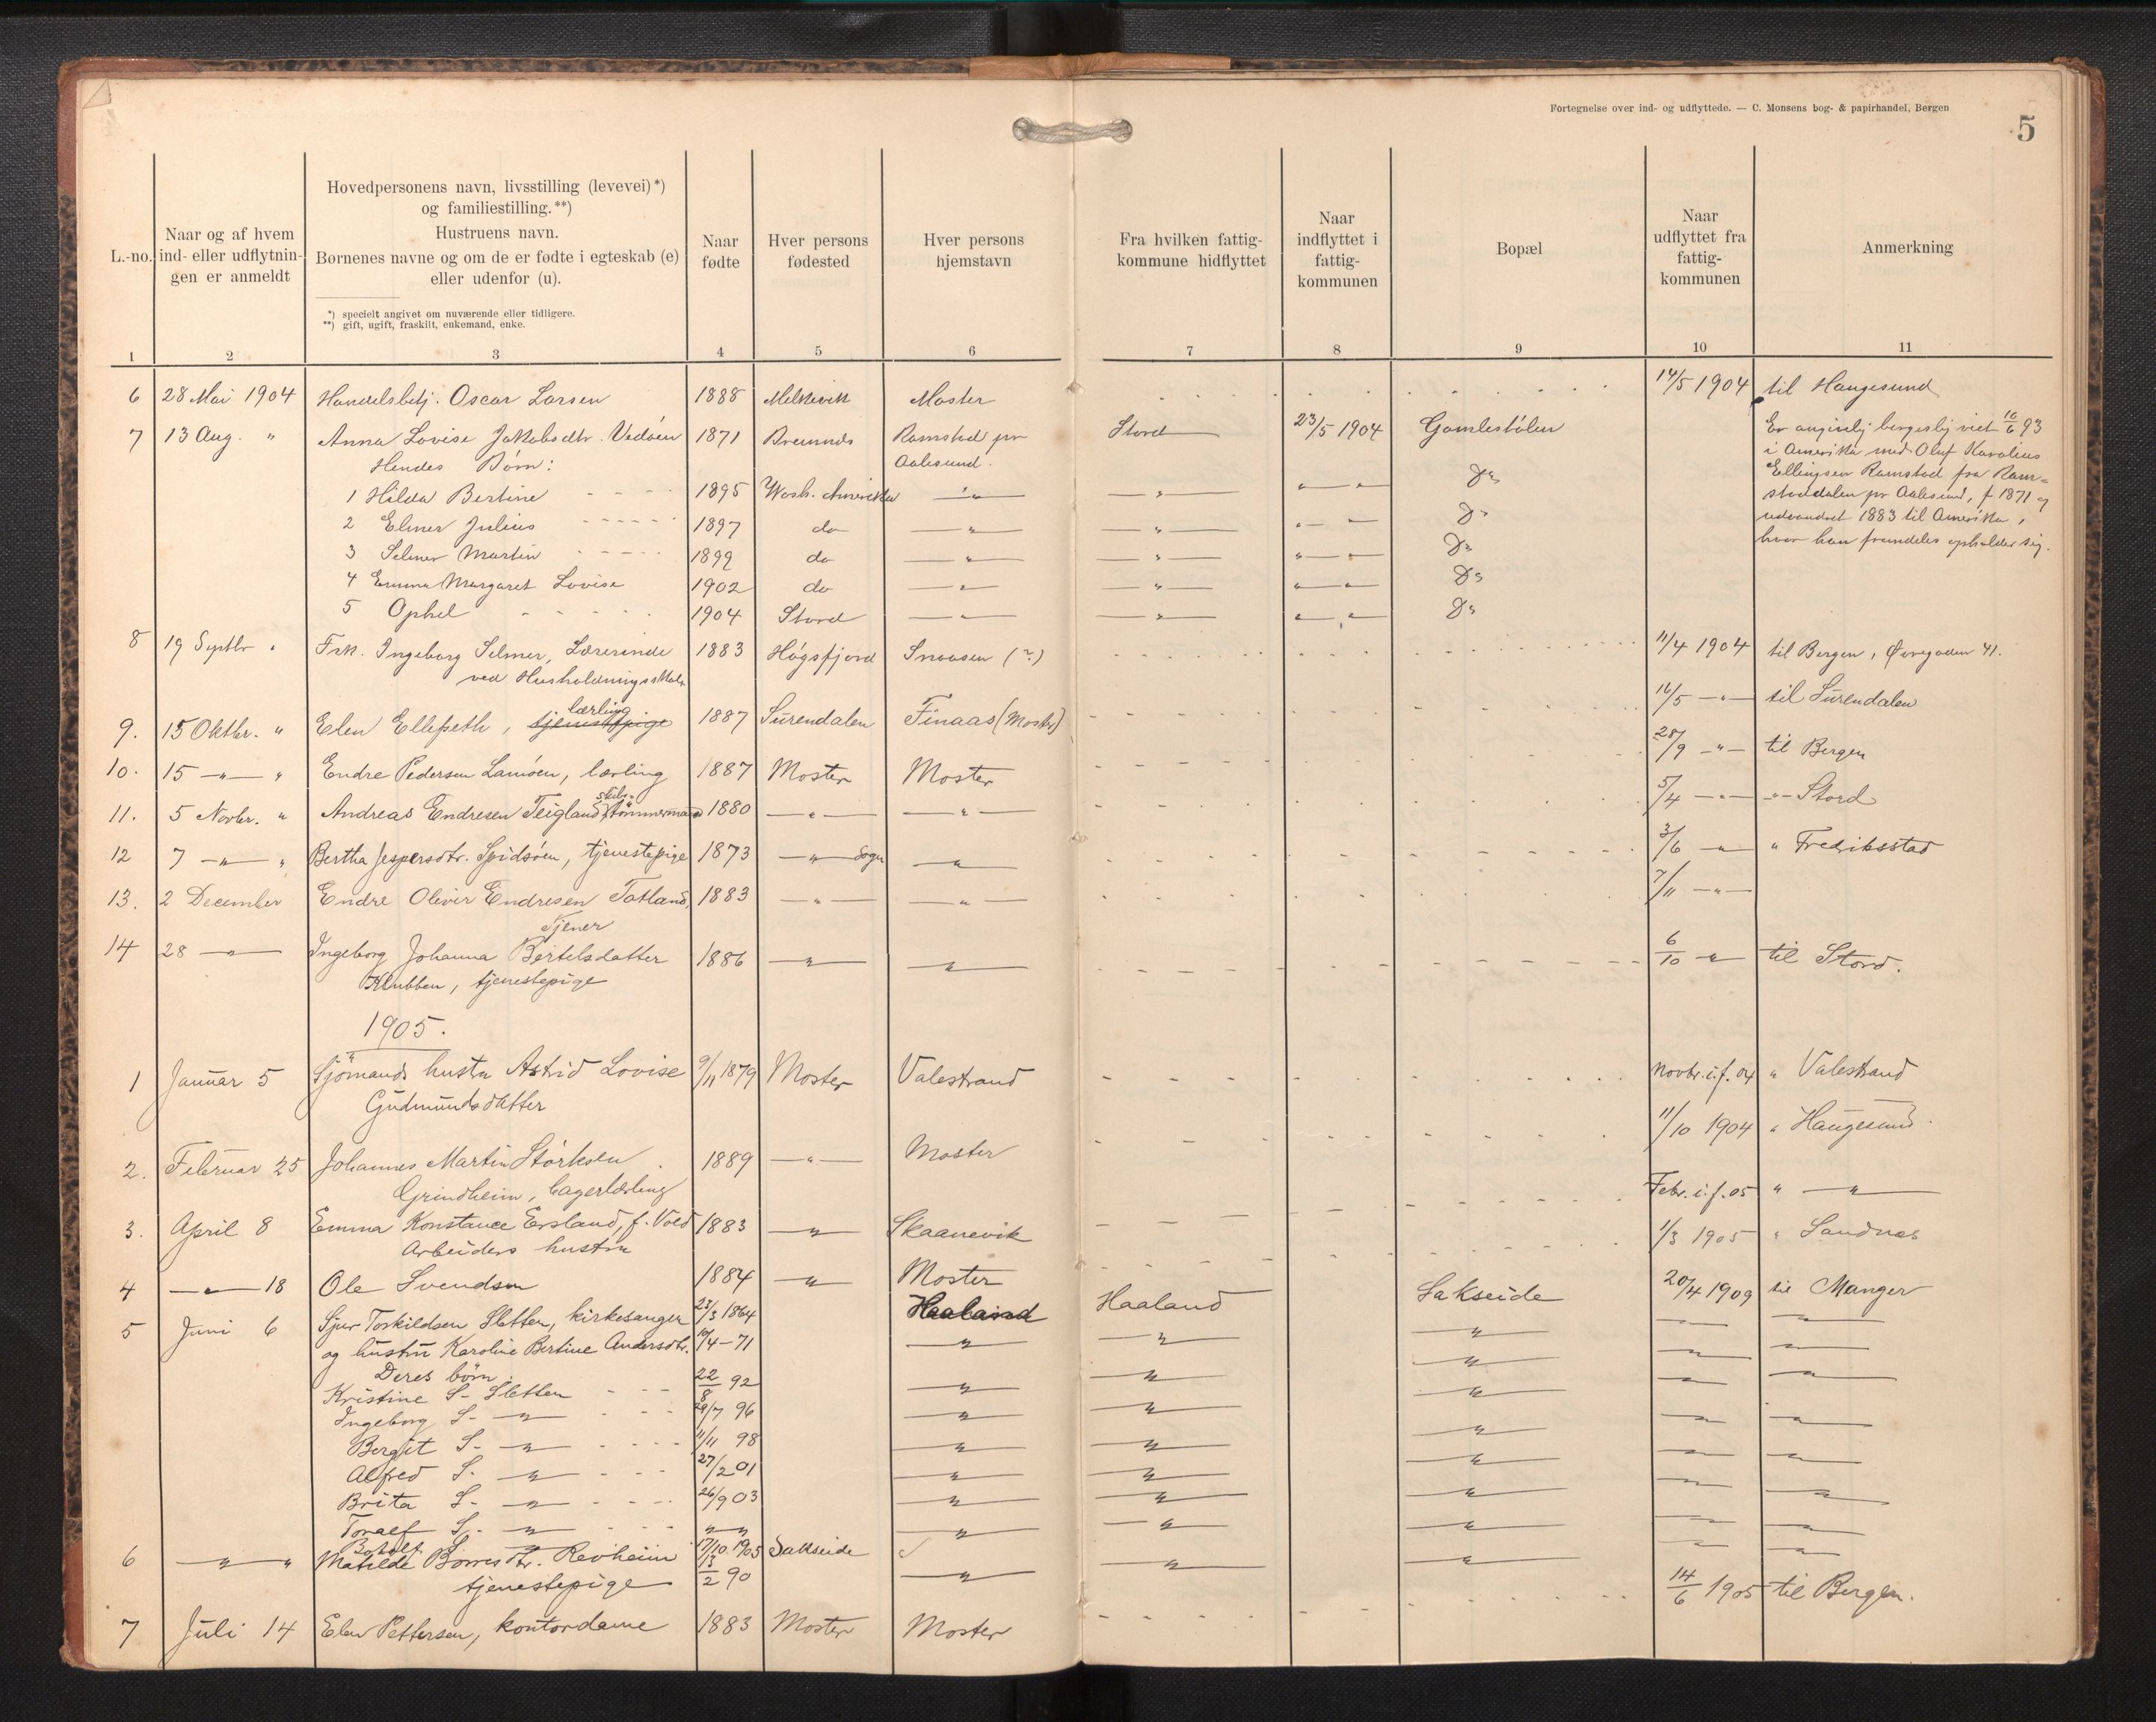 Fortegnelse over ind- og udflyttede. — C. Monsens bog- & papirhandel, Bergen
5
L.-no.
Naar og af hvem
ind- eller udflytnin-
gen er anmeldt
Hovedpersonens navn, livsstilling (levevei)*)
og familiestilling.**)
Hustruens navn.
Børnenes navne og om de er fødte i egteskab (e)
eller udenfor (u).
*) specielt angivet om nuværende eller tidligere.
**) gift, ugift, fraskilt, enkemand, enke.
Naar
fødte
Hver persons
fødested
Hver persons
hjemstavn
Fra hvilken fattig-
kommune hidflyttet
Naar
indflyttet i
fattig-
kommunen
Bopæl
Naar
udflyttet fra
fattig-
kommunen
Anmerkning
1 2 3 4 5 6 7 8 9 10 11
6 28 Mai 1904 Handelsbetj. Oscar Larsen 1888 Melkevik Moster 14/5 1904 til Haugesund
7 13 Aug. " Anna Lovise Jakobsdtr. Vedøen 1871 Bremnes Ramstad pr Aalesund. Stord 23/5 1904 Gamlestølen
Er angivelig borgerlig viet 16/6 93
i Amerika med Oluf Karolius
Ellingsen Ramstad fra Ram=
staddalen pr Aalesund, f 1871 og
udvandret 1883 til Amerika,
hvor han fremdeles opholder sig.
Hendes Børn:
1 Hilda Bertine - - - 1895 Wash. Amerika — " — — " — " — " Do
2 Elmer Julius - - - - 1897 do — " — — " — " — " Do
3 Selmer Martin - - - - 1899 do — " — — " — " — " Do
4 Emma Margaret Lovise 1902 do — " — — " — " — " Do
5 Ophel - - - - 1904 Stord — " — — " — " — " Do
8 19 Septbr " Frk. Ingeborg Selmer, Lærerinde 1883 Høgsfjord Snaasen (?) 11/4 1904 til Bergen, Øvregaden 41.
ved Husholdningsskole
9. 15 Oktbr. " Elen Ellepeth, tjenestepige lærling 1887 Surendalen Finaas (Moster) 16/5 — " — til Surendalen
10. 15 — " — " Endre Pedersen Lamøen, lærling 1887 Moster Moster 28/9 — " — til Bergen
11. 5 Novbr. " Andreas Endresen Teigland, skibs- tømmermand 1880 — " — — " — 5/4 — " — " — Stord
12 7 — " — " Bertha Jespersdtr. Spidsøen, tjenestepige 1873 — " — Sogn — " — 3/6 — " — " Fredriksstad
13. 2 December Endre Oliver Endresen Totland, 1883 — " — — " — 7/11 — " —
Tjener
14 28 — " — Ingeborg Johanna Bertelsdatter 1886 — " — — " — 6/10 — " — til Stord.
Klubben, tjenestepige
1905.
1 Januar 5 Sjömands hustru Astrid Lovise 9/11 1879 Moster Valestrand Novbr. i. f. 04 " Valestrand
Gudmundsdatter
2. Februar 25 Johannes Martin Størksen 1889 — " — Moster 11/10 1904 " Haugesund.
Grindheim, bagerlærling
3. April 8 Emma Konstance Ersland, f. Vold 1883 — " — Skaanevik Febr. i. f. 05 " — " —
Arbeiders hustru
4 — " — 18 Ole Svendsen 1884 — " — Moster 1/3 1905 " Sandnes
5 Juni 6 Sjur Torkildsen Sletten, kirkesanger 23/3 1864 Haaland Haaland Sakseide 20/4 1909 til Manger
og hustru Karoline Bertine Andersdtr. 10/4 - 71 — " — — " — — " — — " — — " —
Deres børn.
Kristine S- Sletten - - - 22/8 92 — " — — " — — " — — " — — " —
Ingeborg S- — " — - - - 29/7 96 — " — — " — — " — — " — — " —
Bergit S- — " — - - - 11/11 98 — " — — " — — " — — " — — " —
Alfred S- — " — - - - 27/2 01 — " — — " — — " — — " — — " —
Brita S- — " — - - - 26/9 03 — " — — " — — " — — " — — " —
Toralf S- — " — - - - " — " — " — — " — — " — — " — — " —
17/10 1905 Sakseide
6 — " — " Matilde Børresdtr. Revheim 3/2 90 — " — — " — — " —
tjenestepige
7 Juli 14 Elen Pettersen, kontordame 1883 Moster Moster 14/6 1905 til Bergen.